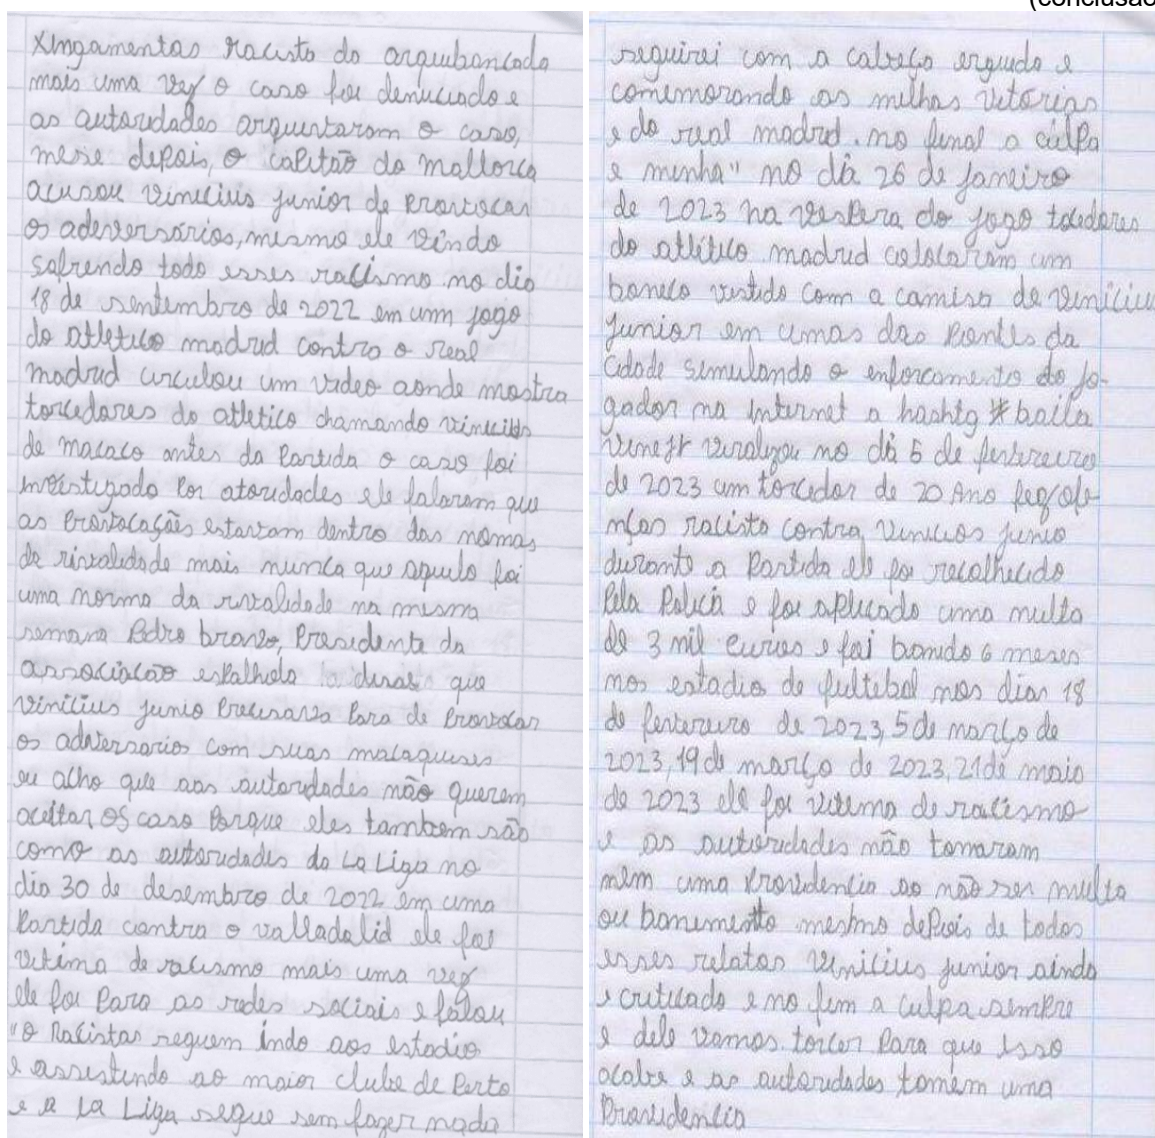 (conclusão
xingamentos racisto da arquibancada
mais uma vez o caso foi denuciado e
as autoridades arquivaram o caso,
mese depois, o capitão do mallorca
acusou vinicius junior de provocar
os adversários, mesmo ele vindo
sofrendo todo esses racismo no dia
18 de sentembro de 2022 em um jogo
do atletico madrid contra o real
madrid circulou um video aonde mostra
torcedores do atletico chamando vinicius
de macaco antes da partida o caso foi
investigado por atoridades ele falaram que
as provocações estavam dentro das nomas
da rivalidade mais nunca que aquilo foi
uma norma da rivalidade na mesma
semana Pedro bravo, Presidente da
associacão espalhola que
vinicius junio precisava para de provocar
os adversarios com suas macaquises
eu acho que aas autoridades não querem
aceitar os caso porque eles tambem são
como as autoridades da La Liga no
dia 30 de desembro de 2022 em uma
Partida contra o valladalid ele foi
vitima de racismo mais uma vez
ele foi para as redes sociais e falou
"o Racistas seguem indo aos estadio
e assistindo ao maior clube de Perto
e a La Liga segue sem fazer nada
seguirei com a cabeça erguida e
comemorando as milhas vitorias
e do real madrid. no final a culpa
e minha" no dia 26 de janeiro
de 2023 na vespera do jogo tocedores
do atlético madrid colocaram um
boneco vestido com a camisa de vinicius
junior em umas das pontes da
cidade simulando o enforcamento do jo-
gador na internet a hashtg #baila
vinejr viralizou no dia 5 de fevereiro
de 2023 um torcedor de 20 Ano fez ofe
nças racista contra vinicios junio
durante a Partida ele foi recolhecido
Pela Policia e foi aplicado uma multa
de 3 mil euries e foi banido 6 meses
nos estadio de fultebol nos dias 18
de fevereiro de 2023, 5 de março de
2023, 19 de março de 2023, 21 de maio
de 2023 ele foi vitema de racismo
e as autoridades não tomaram
nem uma providencia ao não ser multa
ou banimento mesmo depois de todos
esses relatos vinicius junior ainda
e criticado e no fim a culpa sempre
e dele vamos torcer para que isso
acabe e as autoridades tomem uma
Providencia